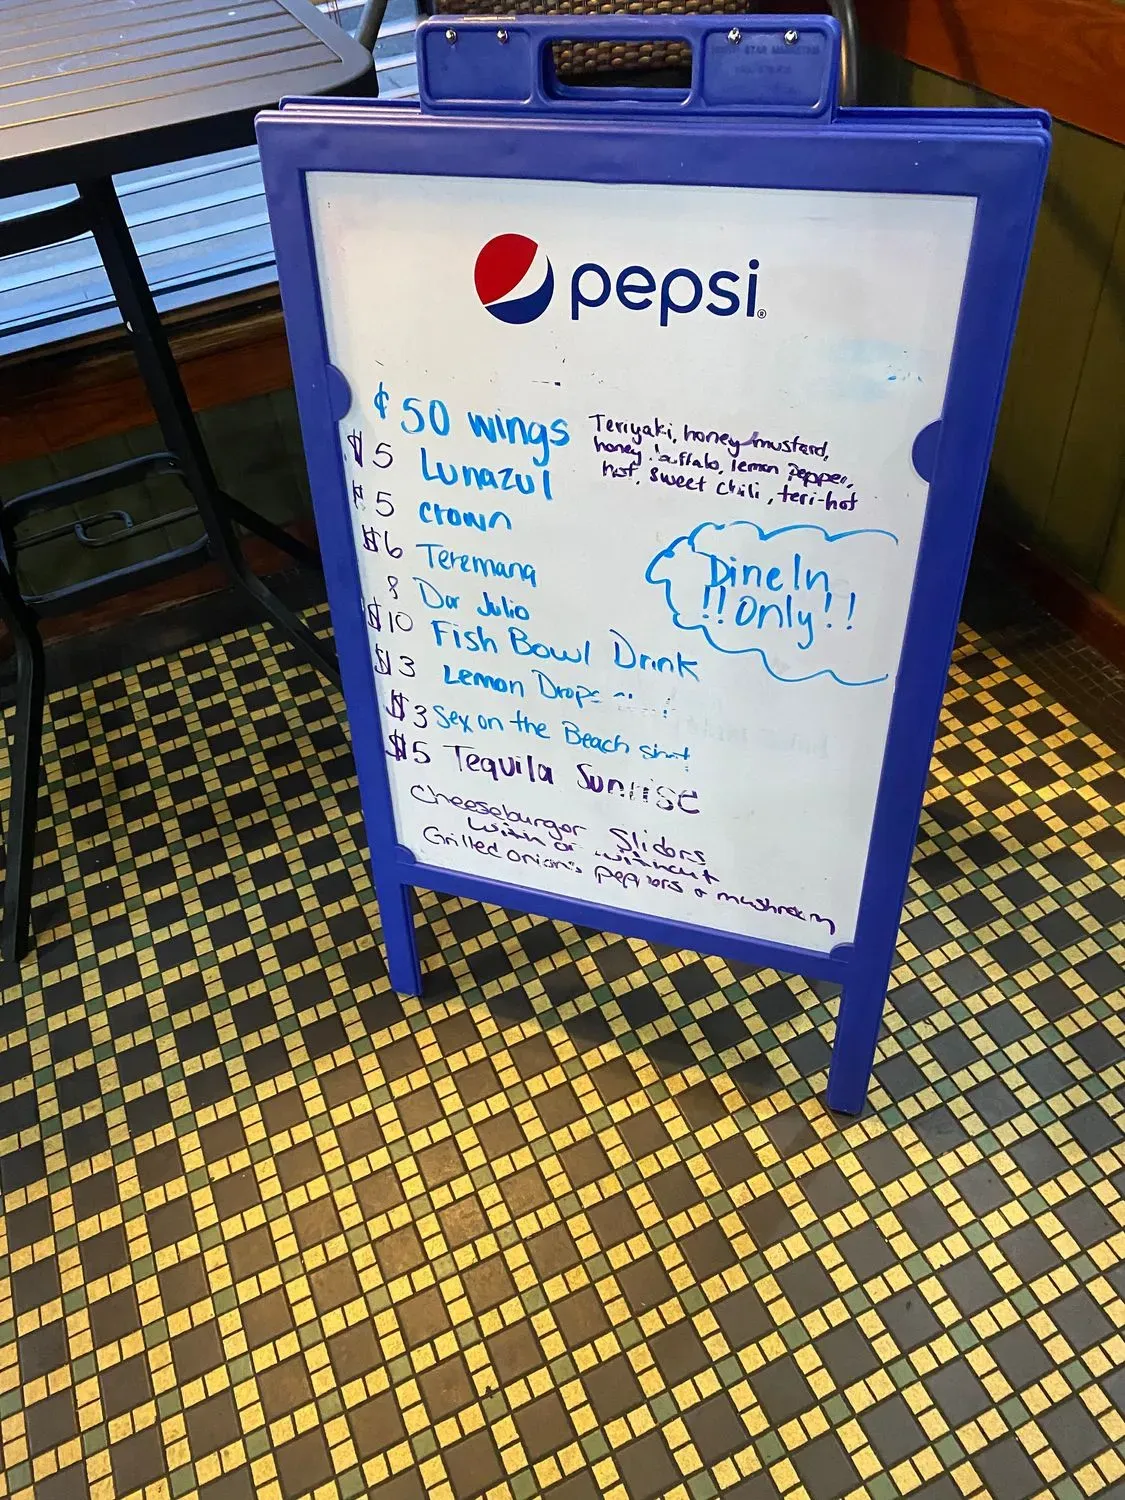 pepsi
¢ 50 wings
Teriyaki, honey mustard,
honey buffalo, lemon pepper,
hot, sweet chili, teri-hot
$5 Lunazul
$5 crown
$6 Teremana
8 Don Julio
$10 Fish Bowl Drink
$3 Lemon Drops
$3 Sex on the Beach shot
$5 Tequila Sunrise
Dine In
!!Only!!
Cheeseburger Sliders
with or without
Grilled onions, peppers & mushroom